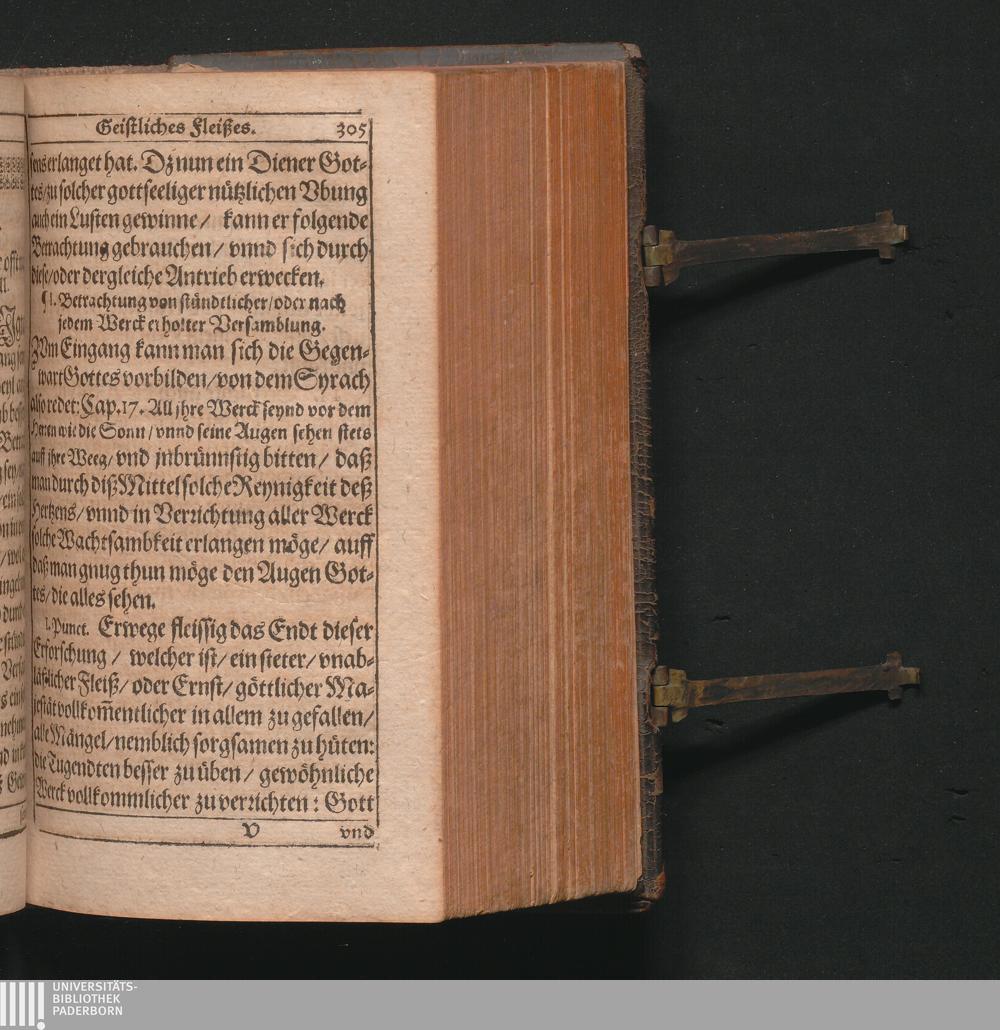 Geistliches Fleißes. 305
sens erlanget hat. Dz nun ein Diener Got-
tes/zu solcher gottseeliger nützlichen Vbung
auch ein Lusten gewinne/ kann er folgende
Betrachtung gebrauchen/ vnnd sich durch
diese/oder dergleiche Antrieb erwecken.
¶ I. Betrachtung von stündtlicher/oder nach
jedem Werck erholter Versamblung.
ZVm Eingang kann man sich die Gegen-
wart Gottes vorbilden/von dem Syrach
also redet: Cap. 17. All jhre Werck seynd vor dem
Herren wie die Sonn/vnnd seine Augen sehen stets
auff jhre Weeg/ vnd jnbrünnstig bitten/ daß
man durch diß Mittel solche Reynigkeit deß
Hertzens/ vnnd in Verrichtung aller Werck
solche Wachtsambkeit erlangen möge/ auff
daß man gnug thun möge den Augen Got-
tes/die alles sehen.
I. Punct. Erwege fleissig das Endt dieser
Erforschung/ welcher ist/ ein steter/ vnab-
läßlicher Fleiß/ oder Ernst/ göttlicher Ma-
jestät vollkom̃entlicher in allem zu gefallen/
alle Mängel/nemblich sorgsamen zu hüten:
die Tugendten besser zu üben/ gewöhnliche
Werck vollkommlicher zu verrichten: Gott
V vnd
UNIVERSITÄTS-
BIBLIOTHEK
PADERBORN